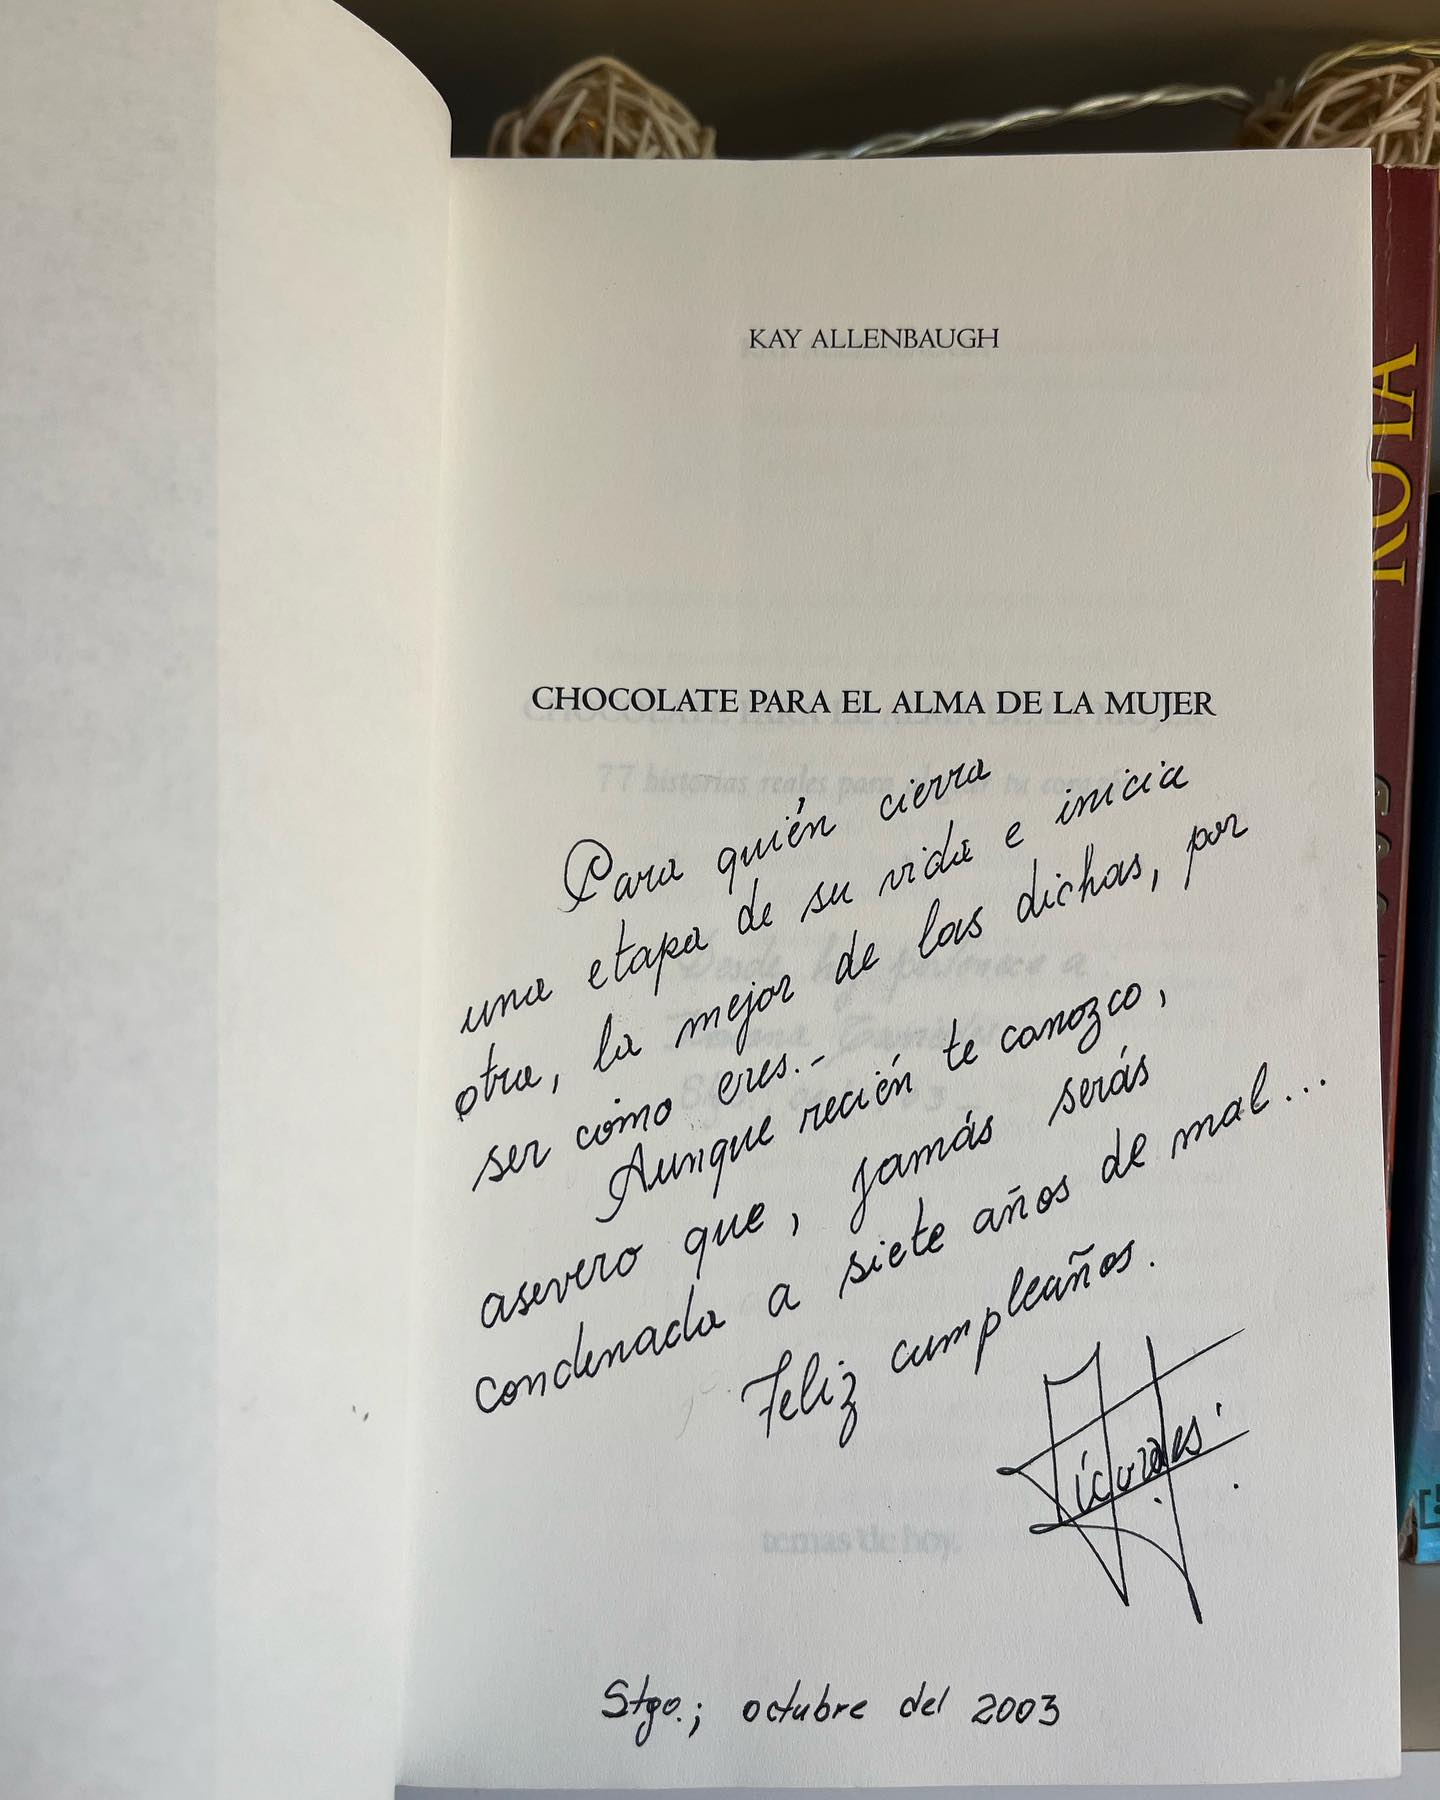 KAY ALLENBAUGH
CHOCOLATE PARA EL ALMA DE LA MUJER
77 historias reales para
Para quién cierra
una etapa de su vida e inicia
otra, la mejor de las dichas, por
ser cómo eres.-
Aunque recién te conozco,
asevero que, jamás serás
condenada a siete años de mal...
Feliz cumpleaños.
Desde hoy pertenece a
temas de hoy.
Stgo.; octubre del 2003